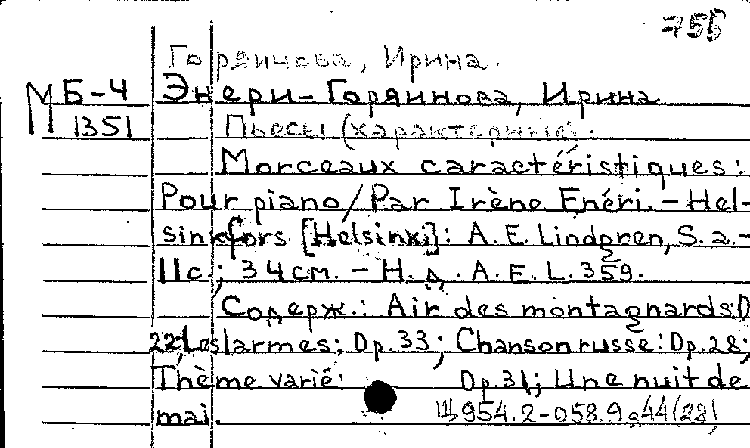 755
Горяинова, Ирина.
М Б-4 Энери-Горяинова, Ирина
1351 Пьесы (характерные).
Morceaux caractéristiques:
Pour piano/Par Irène Enéri. - Hel-
sinkfors [Helsinki]: A. E. Lindgren, S. a. -
11с.; 34см. - Н. д. A. E. L. 359.
Содерж.: Air des montagnards: Op.
22; Les larmes: Op. 33; Chanson russe: Op. 28;
Thème varié: Op. 31; Une nuit de
mai.